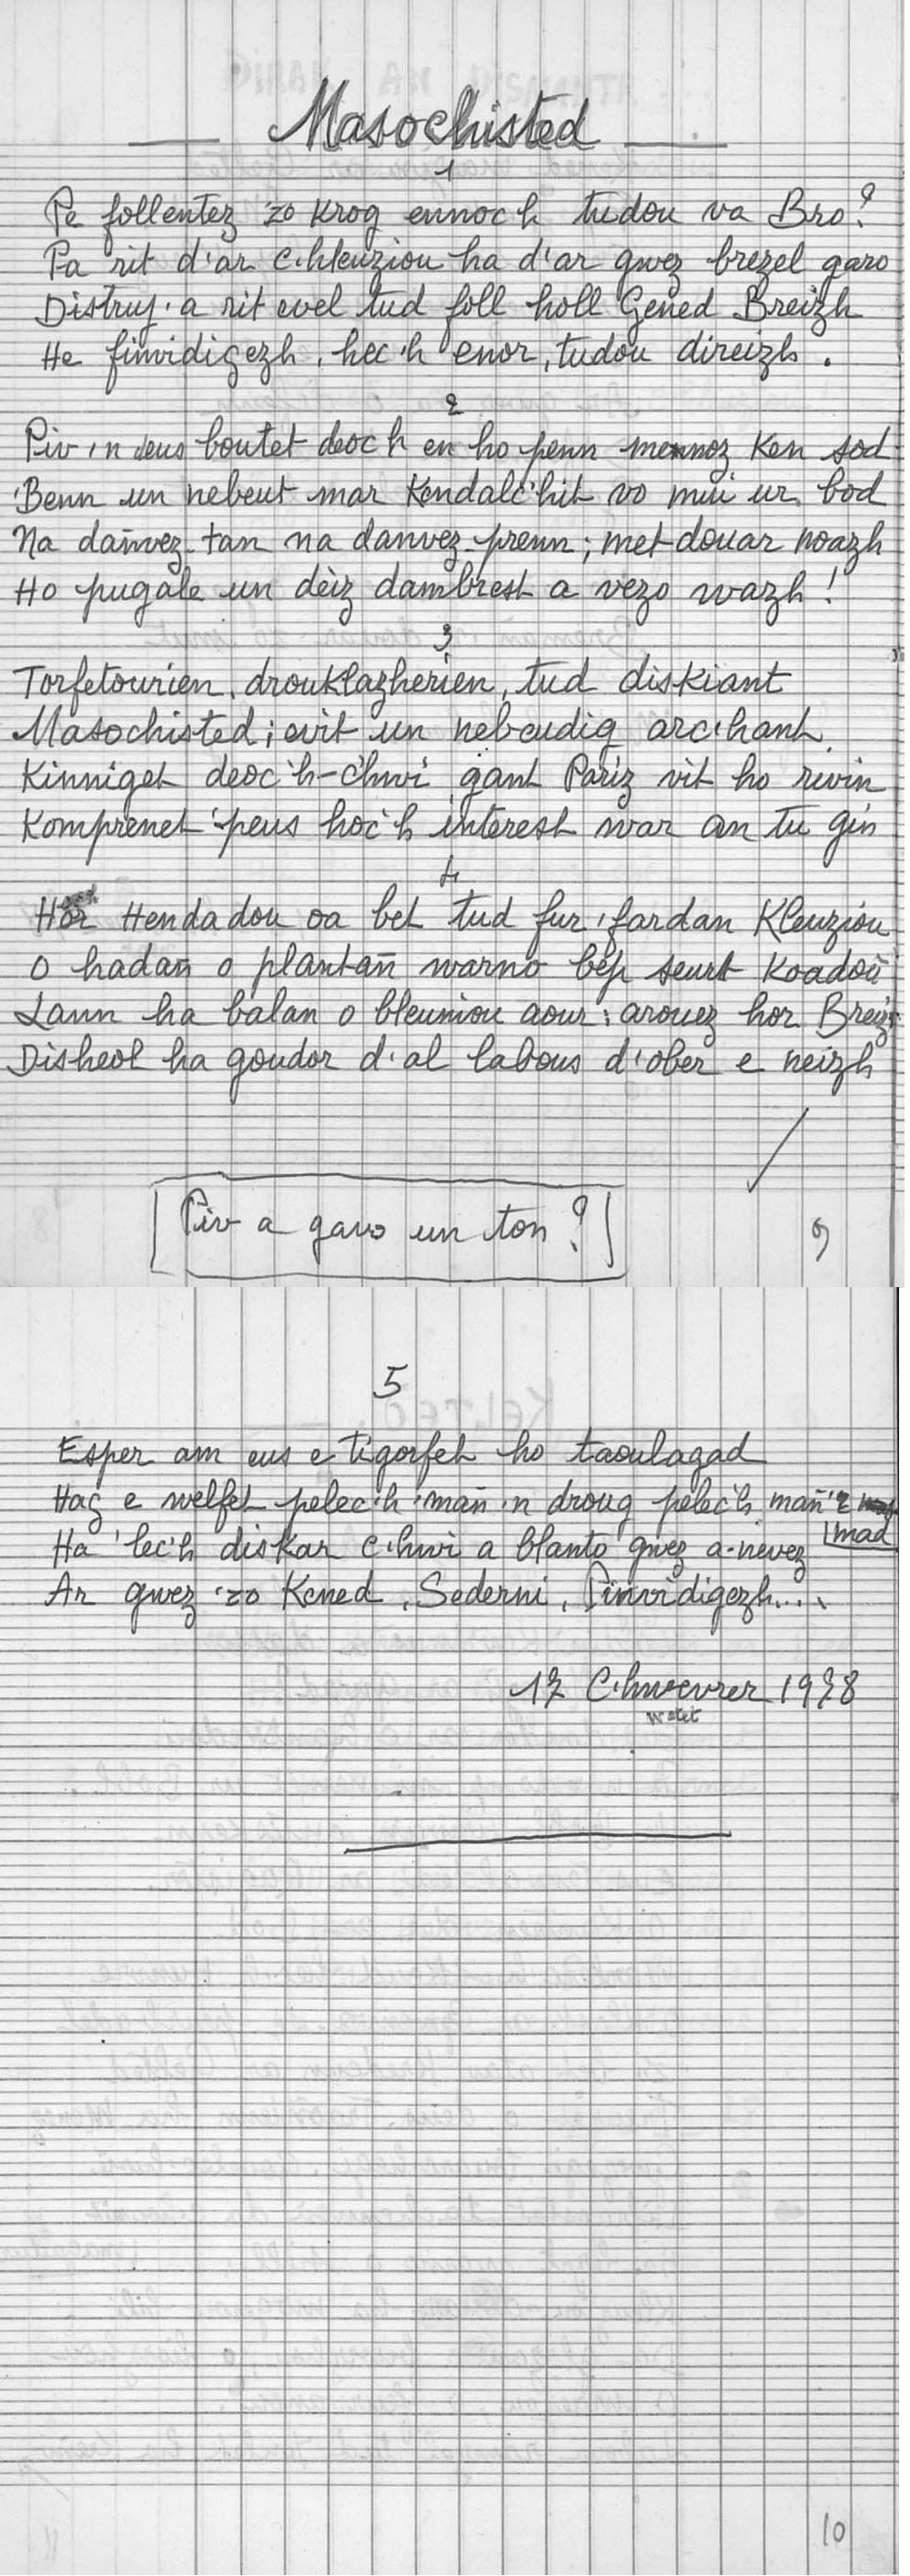 Masochisted
1
Pe follentez 'zo krog ennoc'h tudou va Bro?
Pa rit d'ar c'hleuziou ha d'ar gwez brezel garo
Distruj a rit evel tud foll holl Gened Breizh
He finvidigezh, hec'h enor, tudou direizh.
2
Piv 'n deus boutet deoc'h en ho penn mennoz ken sod
'Benn un nebeut mar kendalc'hit vo mui ur bod
Na dañvez-tan na danvez-prenn; met douar noazh
Ho pugale un deiz dambrest a vezo wazh!
3
Torfetourien, drouklazherien, tud diskiant
Masochisted; evit un nebeudig arc'hant
Kinniget deoc'h-c'hwi gant Pariz vit ho rivin
Komprenet 'peus hoc'h interest war an tu gin
4
Hor Hendadou oa bet tud fur, fardan Kleuziou
O hadañ o plantañ warno bep seurt koadoù
Lann ha balan o bleuniou aour: arouez hor Breiz
Disheol ha goudor d'al labous d'ober e neizh
Piv a gavo un ton?
9
5
Esper am eus e tigorfet ho taoulagad
Hag e welfet pelec'h 'mañ 'n droug pelec'h mañ 'r
mad
Ha 'lec'h diskar c'hwi a blanto gwez a-nevez
Ar gwez 'zo Kened, Sederni, Pinvidigezh....
17 C'hwevrer 1978
10